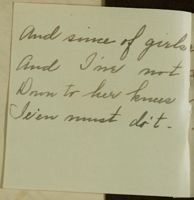 And since of girls
And I've not
Down to her knees
must do't.